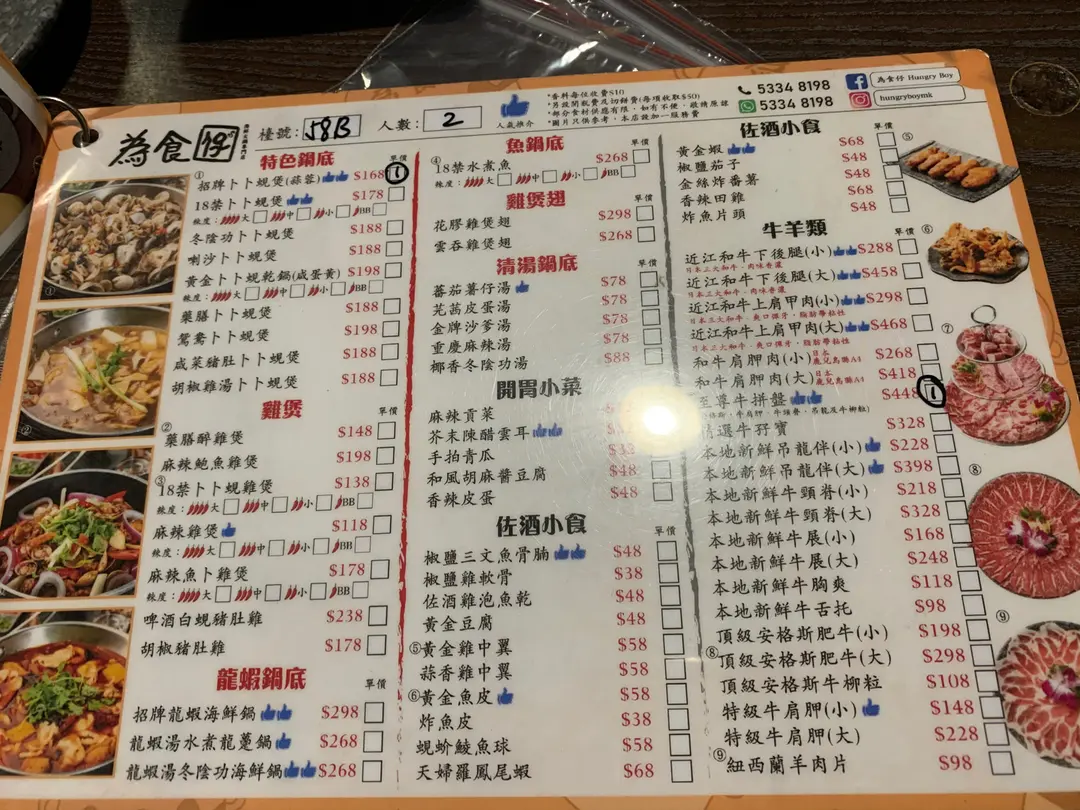 為食仔
檯號: 58B 人數: 2
人氣推介
*香料每位收費$10
*另設開瓶費及切餅費(每項收取$50)
*部份食材供應有限，如有不便，敬請原諒
*圖片只供參考，本店設加一服務費
5334 8198
5334 8198
為食仔 Hungry Boy
hungryboymk
特色鍋底 單價
①招牌卜卜蜆煲(蒜蓉) $168 1
18禁卜卜蜆煲 $178
辣度: 大 中 小 BB
冬陰功卜卜蜆煲 $188
喇沙卜卜蜆煲 $188
黃金卜卜蜆乾鍋(咸蛋黃) $198
辣度: 大 中 小 BB
藥膳卜卜蜆煲 $188
鴛鴦卜卜蜆煲 $198
咸菜豬肚卜卜蜆煲 $188
胡椒雞湯卜卜蜆煲 $188
雞煲 單價
②藥膳醉雞煲 $148
麻辣鮑魚雞煲 $198
③18禁卜卜蜆雞煲 $138
辣度: 大 中 小 BB
麻辣雞煲 $118
辣度: 大 中 小 BB
麻辣魚卜雞煲 $178
辣度: 大 中 小 BB
啤酒白蜆豬肚雞 $238
胡椒豬肚雞 $178
龍蝦鍋底 單價
招牌龍蝦海鮮鍋 $298
龍蝦湯水煮龍躉鍋 $268
龍蝦湯冬陰功海鮮鍋 $268
魚鍋底 單價
④18禁水煮魚 $268
辣度: 大 中 小 BB
雞煲翅 單價
花膠雞煲翅 $298
雲吞雞煲翅 $268
清湯鍋底 單價
蕃茄薯仔湯 $78
芫茜皮蛋湯 $78
金牌沙爹湯 $78
重慶麻辣湯 $78
椰香冬陰功湯 $88
開胃小菜
麻辣貢菜
芥末陳醋雲耳
手拍青瓜
和風胡麻醬豆腐 $48
香辣皮蛋 $48
佐酒小食 單價
椒鹽三文魚骨腩 $48
椒鹽雞軟骨 $38
佐酒雞泡魚乾 $48
黃金豆腐 $48
⑤黃金雞中翼 $58
蒜香雞中翼 $58
⑥黃金魚皮 $58
炸魚皮 $38
蜆蚧鯪魚球 $58
天婦羅鳳尾蝦 $68
佐酒小食 單價
黃金蝦 $68
椒鹽茄子 $48
金絲炸番薯 $48
香辣田雞 $68
炸魚片頭 $48
牛羊類 單價
近江和牛下後腿(小) $288
日本三大和牛，肉味香濃
近江和牛下後腿(大) $458
日本三大和牛，肉味香濃
近江和牛上肩甲肉(小) $298
日本三大和牛，爽口彈牙，脂肪帶黏性
近江和牛上肩甲肉(大) $468
日本三大和牛，爽口彈牙，脂肪帶黏性
和牛肩胛肉(小) 日本鹿兒島縣A4 $268
和牛肩胛肉(大) 日本鹿兒島縣A4 $418
至尊牛拼盤 $448 1
牛肩胛，牛頸脊，吊龍及牛柳粒)
精選牛孖寶 $328
本地新鮮吊龍伴(小) $228
本地新鮮吊龍伴(大) $398
本地新鮮牛頸脊(小) $218
本地新鮮牛頸脊(大) $328
本地新鮮牛展(小) $168
本地新鮮牛展(大) $248
本地新鮮牛胸爽 $118
本地新鮮牛舌托 $98
頂級安格斯肥牛(小) $198
⑧頂級安格斯肥牛(大) $298
頂級安格斯牛柳粒 $108
特級牛肩胛(小) $148
特級牛肩胛(大) $228
⑨紐西蘭羊肉片 $98
①
②
⑤
⑥
⑦
⑧
⑨